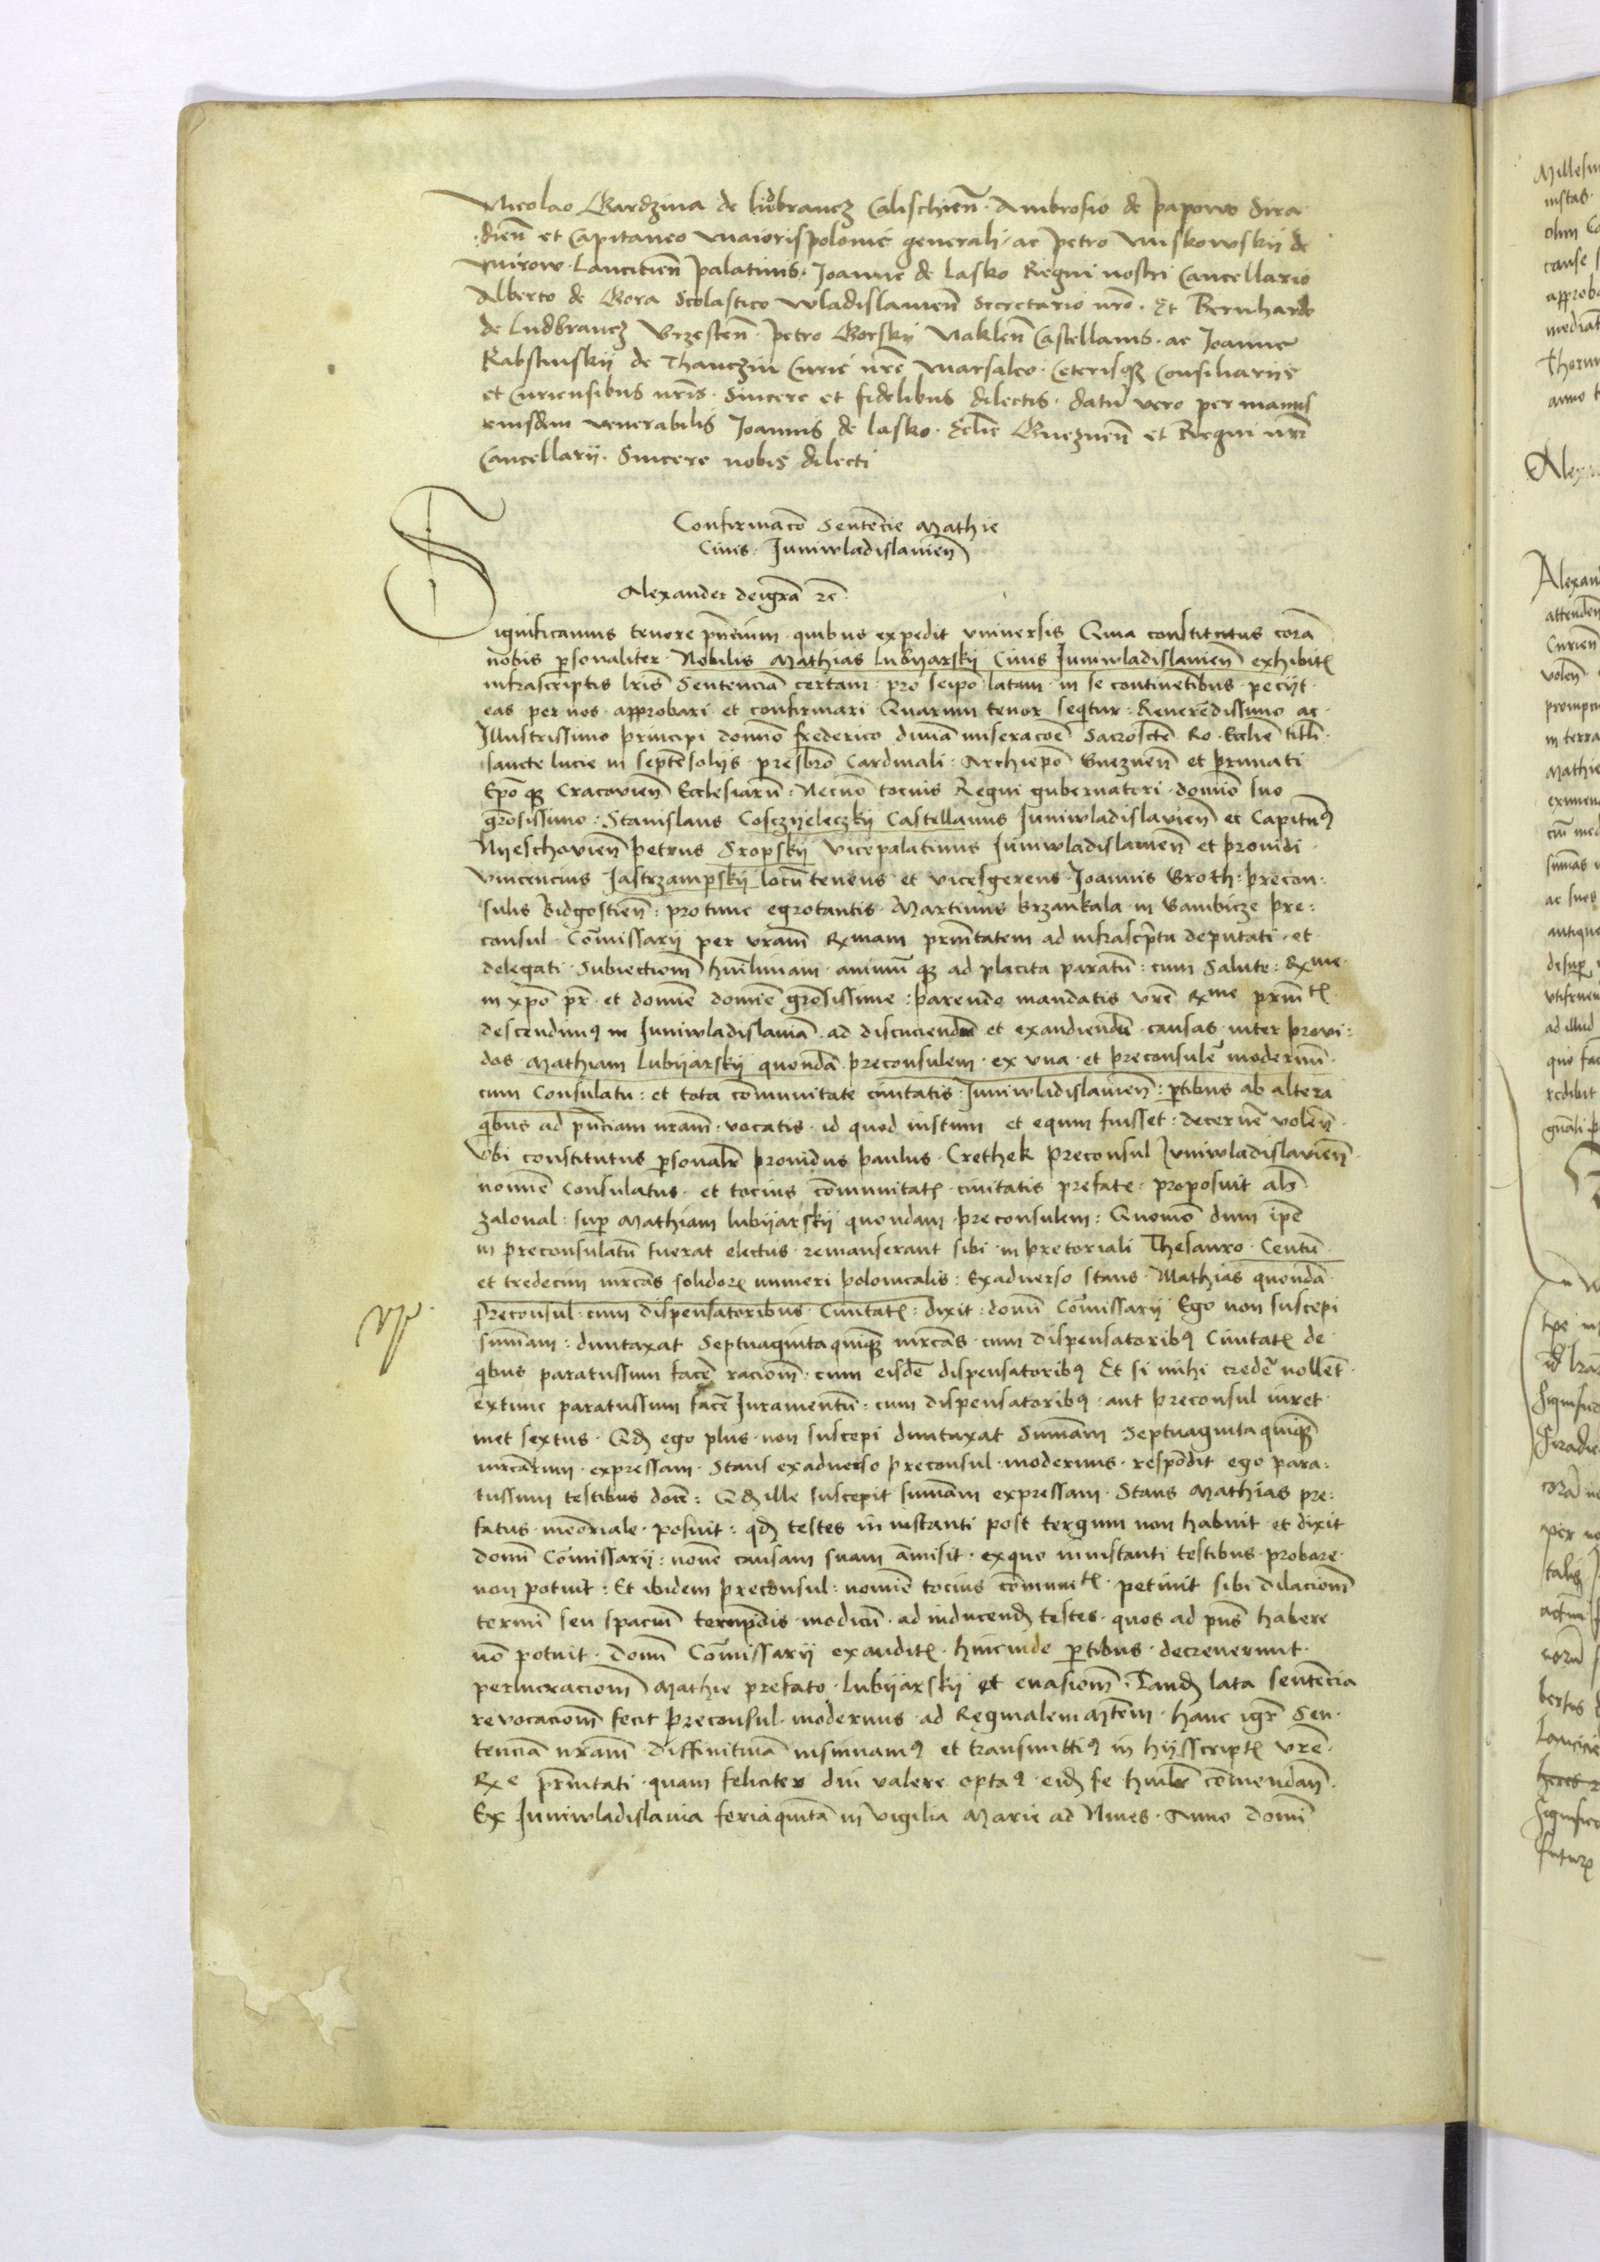 Nicolao Gardzina de ludbrancz Calischien̄ · Ambrosio de paporwo Sira
dien̄ et Capitaneo maioris polonie generali · ac petro Miskowskij de
Mirow · Lancicien̄ palatinis · Joanne de lasko Regni nostri Cancellario
Alberto de Gora Scolastico wladislauien̄ Secretario nrō · Et Bernhardo
de ludbrancz Brzesten̄ · petro Gorskij Naklen̄ Castellanis · ac Joanne
Rabstinskij de Thanczin Curie nrē Marsalco · Ceterisqꝫ Consiliarijs
et Curiensibus nrīs · Sincere et fidelibus dilectis · datū vero per manus
eiusdem venerabilis Joannis de lasko · Gneznen̄ et Regni nrī
Cancellarij · Sincere nobis dilecti
Confirmacō Sentēcie Mathie
Ciuis · Juniwladislauien̄
Alexander dei grā rē
Significamus tenore pn̄cium · quibus expedit vniuersis Quia constitutus corā
nobis personaliter · Nobilis Mathias Lubijarskij Ciuis Juniwladislauien̄ exhibitꝭ
infrascriptis lrīs Sentenciā certam · pro seipō latam · in se continētibus · pecijt
eas per nos · approbari et confirmari Quarum tenor seqtur : Reuerēdissimo ac
Illustrissimo principi domīo frederico diuīa miseracōe Sacrosctē Ro · Ecclīe titlī
sancte lucie in septēsolijs · presbrō Cardinali · Archiepō Gneznen̄ et primati
Epō qꝫ Cracouien̄ Ecclesiarū : Necnō tocius Regni gubernatori · domīo suo
grōsissimo : Stanislaus Cosczijeleczkij Castellanus Juniwladislauien̄ et Capitnꝰ
Nijeschouien̄ petrus Sropskij vicepalatinus Juniwladislauien̄ et prouidi
vincencius Jastrzampskij locū tenens et vicesgerens Joannis Groth : precon :
sulis Bidgostien̄ : pro tunc egrotantis · Martinus krzankala in Gambicze pre :
consul · Cōmissarij per vrām Rxmam prnītatem ad infrascrpta deputati · et
delegati · Subiectionē huīlimam · animū qꝫ ad placita paratū : cum Salute : Rxme
in xpō pr̄ · et domīe domīe grōsissime : parendo mandatis vrē Rxme prnītꝭ
descendimꝰ in Juniwladislauiā · ad discuciendū et exaudiendū · causas inter proui :
dos · Mathiam Lubijarskij quondā preconsulem · ex vna · et preconsulē modernū
cum Consulatu : et tota cōmunitate ciuitatis · Juniwladislauien̄ : ptibus ab altera
qbus ad pn̄ciam nrām · vocatis · id quod iustum et equm fuisset · decernē volen̄
Vbi constitutus psonalr̄ prouidus paulus · Crethek preconsul Juniwladislauien̄
nomīe consulatus · et tocius cōmunitatꝭ · ciuitatis prefate · proposuit als̄
zaloual : sup Mathiam lubijarskij quondam · preconsulem : Quomō dum ipē
in preconsulatū fuerat electus · remanserant sibi · in pretoriali Thesauro · Centū
et tredecim mrcās solidorꝭ numeri polonicalis : Exaduerso stans · Mathias quondā
preconsul · cum dispensatoribus · Ciuitatꝭ : dixit : domī Cōmissarij Ego non suscepi
sumam : duntaxat Septuagintaquinqꝫ mrcās · cum dispensatoribꝰ Ciuitatꝭ de
qbus paratussum facē racionē · cum eisdē dispensatoribꝰ Et si mihi credē nollēt
extunc paratussum facē Juramentū : cum dispensatoribꝰ · aut preconsul iuret
met sextus · Qđ ego plus · non suscepi duntaxat Summam Septuagintaquinqꝫ
mrcārum · expressam · Stans exaduerso preconsul · modernus · respōdit ego para :
tussum testibus docē : Qđ ille suscepit summam expressam · Stans Mathias pre :
fatus · memoriale · posuit : qđ testes in instanti post tergum non habuit · et dixit
domī Cōmissarij : nonne causam suam āmisit · exquo in instanti testibus · probare
non potuit : Et ibidem preconsul : nomīe tocius cōmunitꝭ · petiuit sibi dilacionē
termī seu spaciū temporis · modicū · ad inducendꝫ testes · quos ad pn̄s habere
nō potuit · Domī Cōmissarij exauditꝭ · hincinde ptibus · decreuerunt
perlucracionē Mathie prefato · Lubijarskij et euasionē · Tandꝫ lata sentēcia
reuocacionē fecit preconsul · modernus · ad Regiualem Mtēm · hanc igr̄ Sen
tenciā nrām · diffinitiuā insinuamꝰ et transmittiꝰ in hijsscriptꝭ vrē
Rxe prnītati · quam feliciter diu valere optaꝰ · eidꝫ se huilr̄ cōmendan̄
Ex Juniwladislauia feria quinta in vigilia Marie ad Niues · Anno Domī